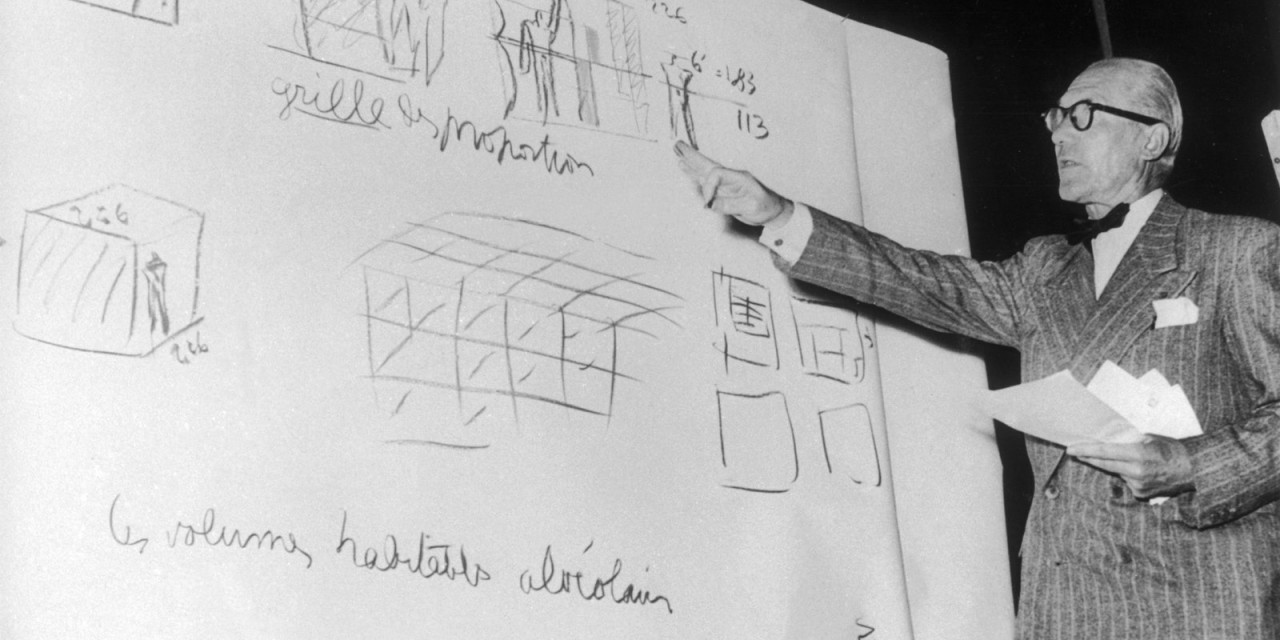 226
6' = 183
113
grille des proportion
226
226
les volumes habitables alvéolaires